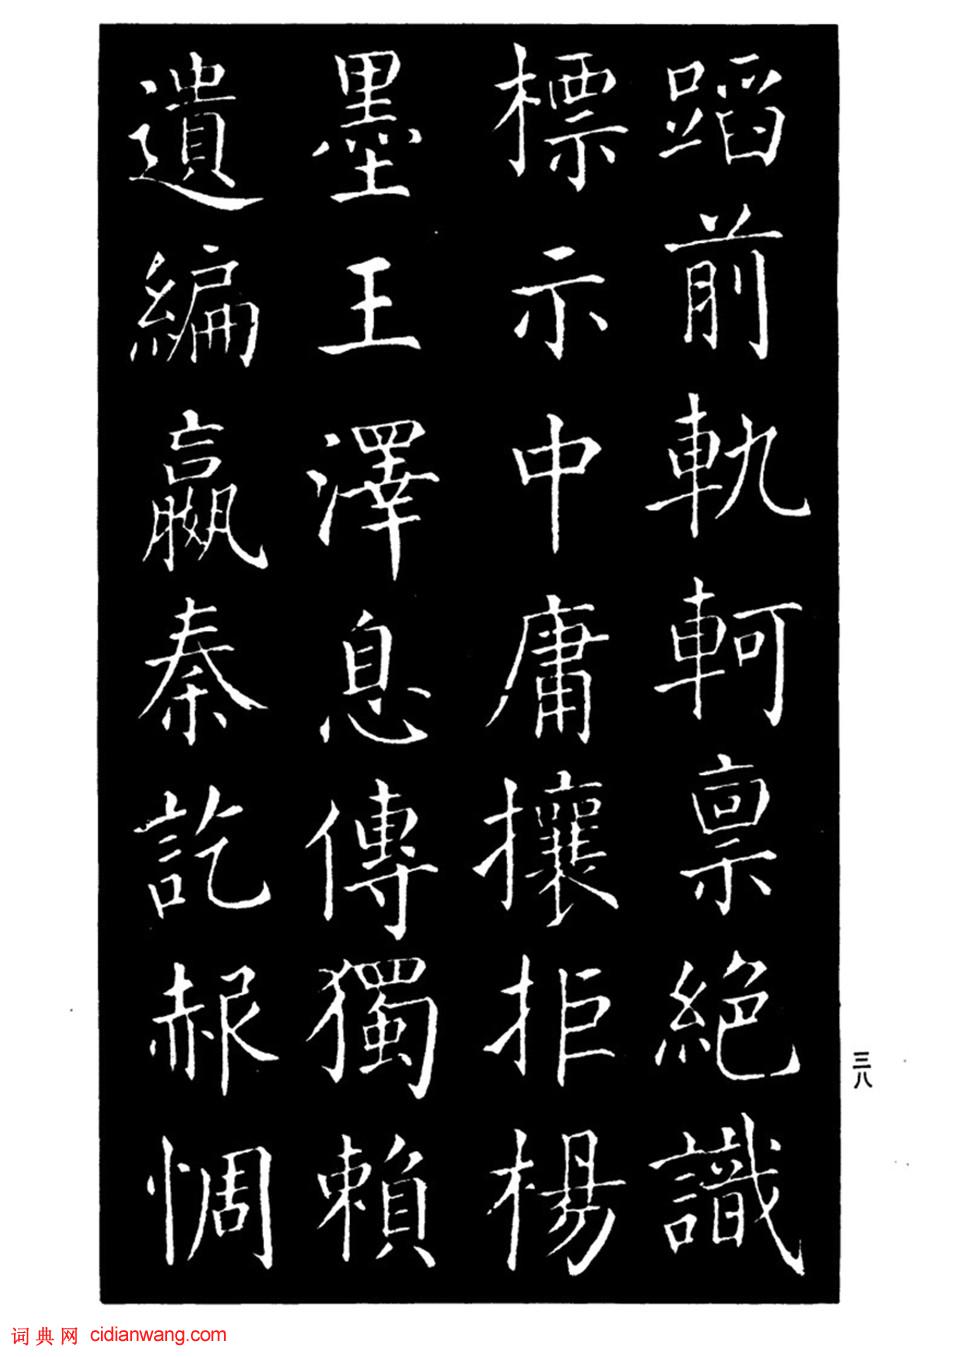 蹈前軌軻禀絕識
標示中庸攘拒楊
墨王澤息傳獨賴
遺編嬴秦訖赧惆
三八
词典网 cidianwang.com